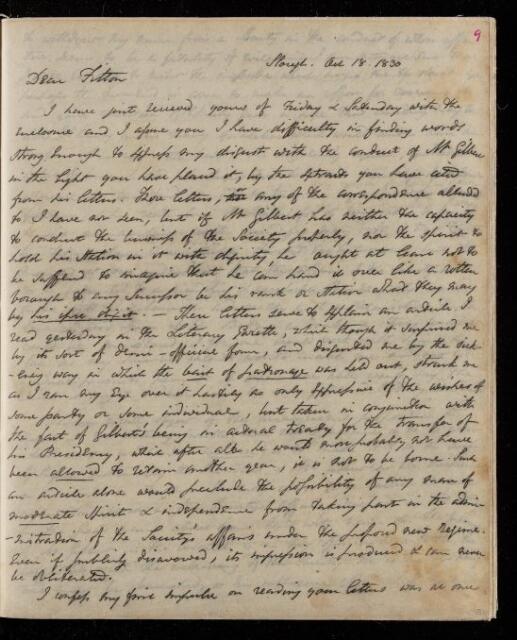 9
Slough. Oct 18. 1830
Dear Fitton
I have just recieved yours of Friday & Saturday with the
inclosure and I assure you I have difficulty in finding words
strong enough to express my disgust with the conduct of Mr Gilbert
in the light you have placed it, by the extracts you have cited
from his letters. These letters, or any of the correspondence alluded
to I have not seen, but if Mr Gilbert has neither the capacity
to conduct the business of the Society properly, nor the spirit to
hold his station in it with dignity, he ought at least not to
be suffered to imagine that he can hand it over like a rotten
borough to any Successor be his rank or station what they may
by his ipse dixit. — These letters serve to explain an article I
read yesterday in the Literary Gazette, which though it surprised me
by its sort of demi-official form, and disgusted me by the
way in which the bait of patronage was held out, struck me
as I ran my Eye over it hastily as only expressive of the wishes of
some party or some individual, but taken in conjunction with
the fact of Gilbert's being in actual treaty for the transfer of
his Presidency, which after all he would most probably not have
been allowed to retain another year, it is not to be borne. Such
an article alone would preclude the possibility of any man of
moderate spirit & independence from taking part in the admi-
-nistration of the Society's affairs under the proposed new regime.
Even if publicly disavowed, its impression is produced & can never
be obliterated.
I confess my first impulse on reading your letters was at once